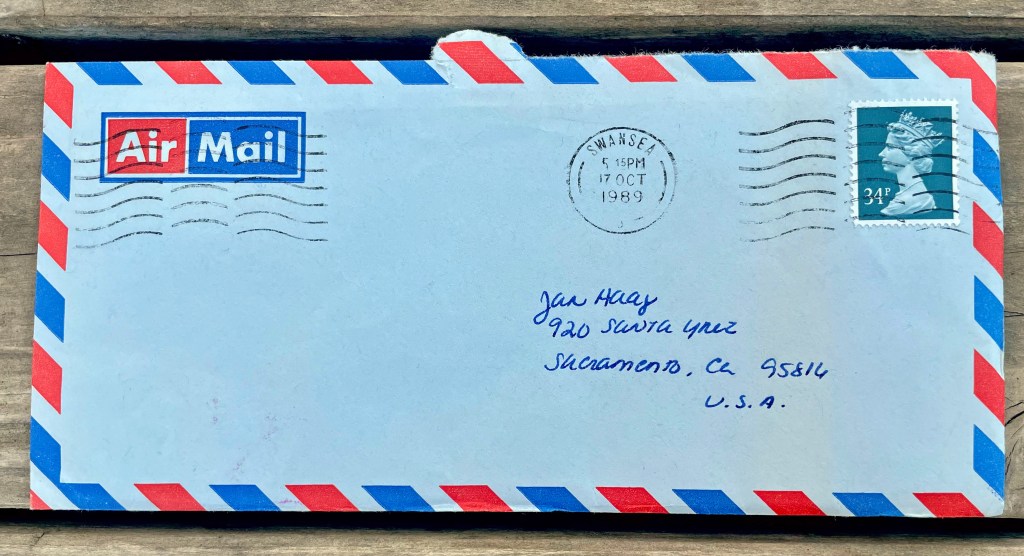 Air Mail
SWANSEA
5 15PM
17 OCT
1989
34P
Jan Haag
920 Santa Ynez
Sacramento, Ca 95814
U.S.A.